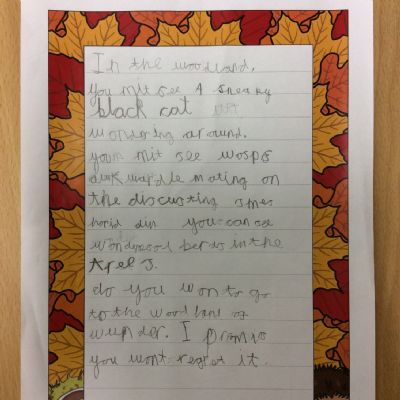 In the woodland.
you mit see A sneaky
black cat
wondering around.
youn mit see wosps
awkwardle mating on
the discusting smes
horid din you can se
wonderool berds in the
treeJ.
do you won to go
to the wood land of
wunder. I promis
you wont regret it.